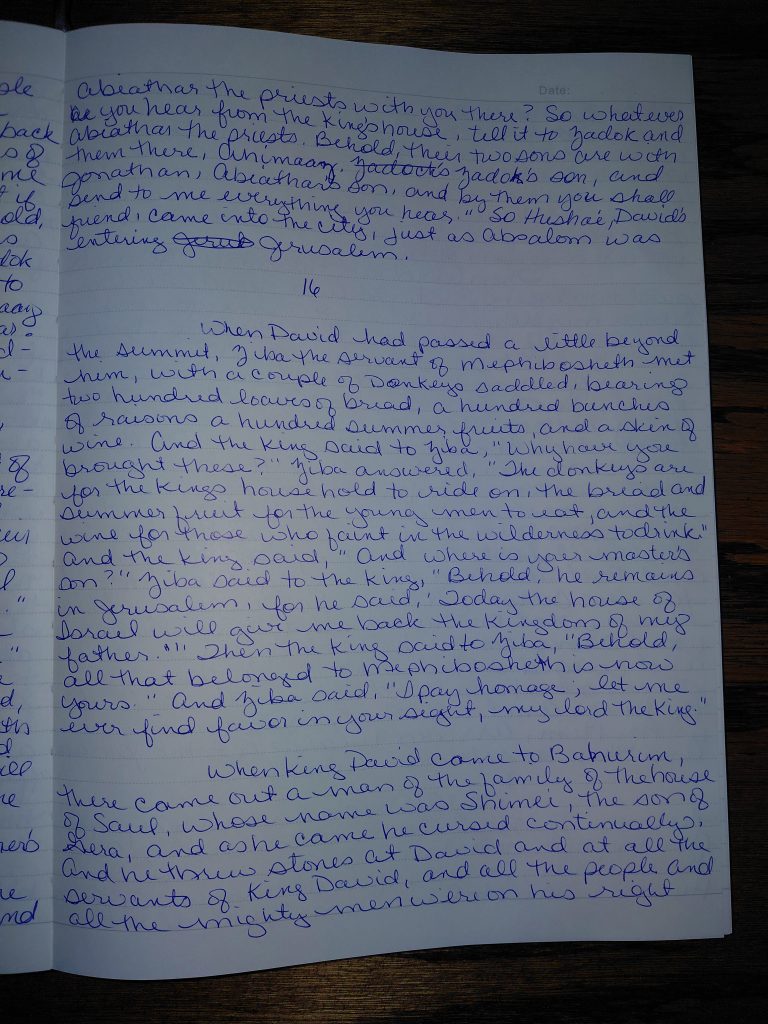 Date:
abiathar the priests with you there? So whatever
you hear from the king's house, tell it to Zadok and
abiathar the priests. Behold, their two sons are with
them there, Ahimaaz, Zadock's Zadok's son, and
Jonathan, Abiathar's son, and by them you shall
send to me everything you hear." So Hushai, David's
friend, came into the city, just as Absalom was
entering Jerusalem.
16
When David had passed a little beyond
the summit, Ziba the servant of Mephibosheth met
him, with a couple of Donkeys saddled, bearing
two hundred loaves of bread, a hundred bunches
of raisons a hundred summer fruits, and a skin of
wine. And the king said to Ziba, "Why have you
brought these?" Ziba answered, "The donkeys are
for the kings household to ride on, the bread and
summer fruit for the young men to eat, and the
wine for those who faint in the wilderness to drink."
and the king said, "And where is your master's
son?" Ziba said to the king, "Behold, he remains
in Jerusalem, for he said, 'Today the house of
Israel will give me back the kingdom of my
father.'" Then the king said to Ziba, "Behold,
all that belonged to Mephibosheth is now
yours." And Ziba said, "I pay homage; let me
ever find favor in your sight, my lord the king."
When King David came to Bahurim,
there came out a man of the family of the house
of Saul, whose name was Shimei, the son of
Gera, and as he came he cursed continually.
and he threw stones at David and at all the
servants of King David, and all the people and
all the mighty men were on his right
ple
back
s of
me
if
old,
dok
to
of
re-
l
d,
the
nd